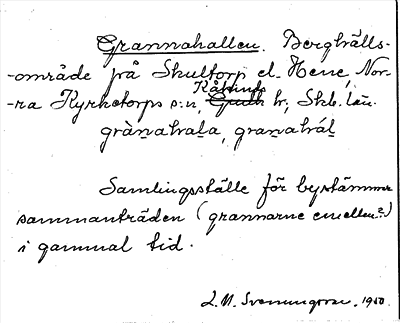 Grannahallen. Berghälls-
-område på Skultorp el. Hene, Nor-
-ra Kyrketorps s:n, Kåkinds h; Skb. län.
grànahala, granahál
Samlingsställe för bystämmor
sammanträden (grannarne emellan?)
i gammal tid.
L. M. Svenungsson. 1910.